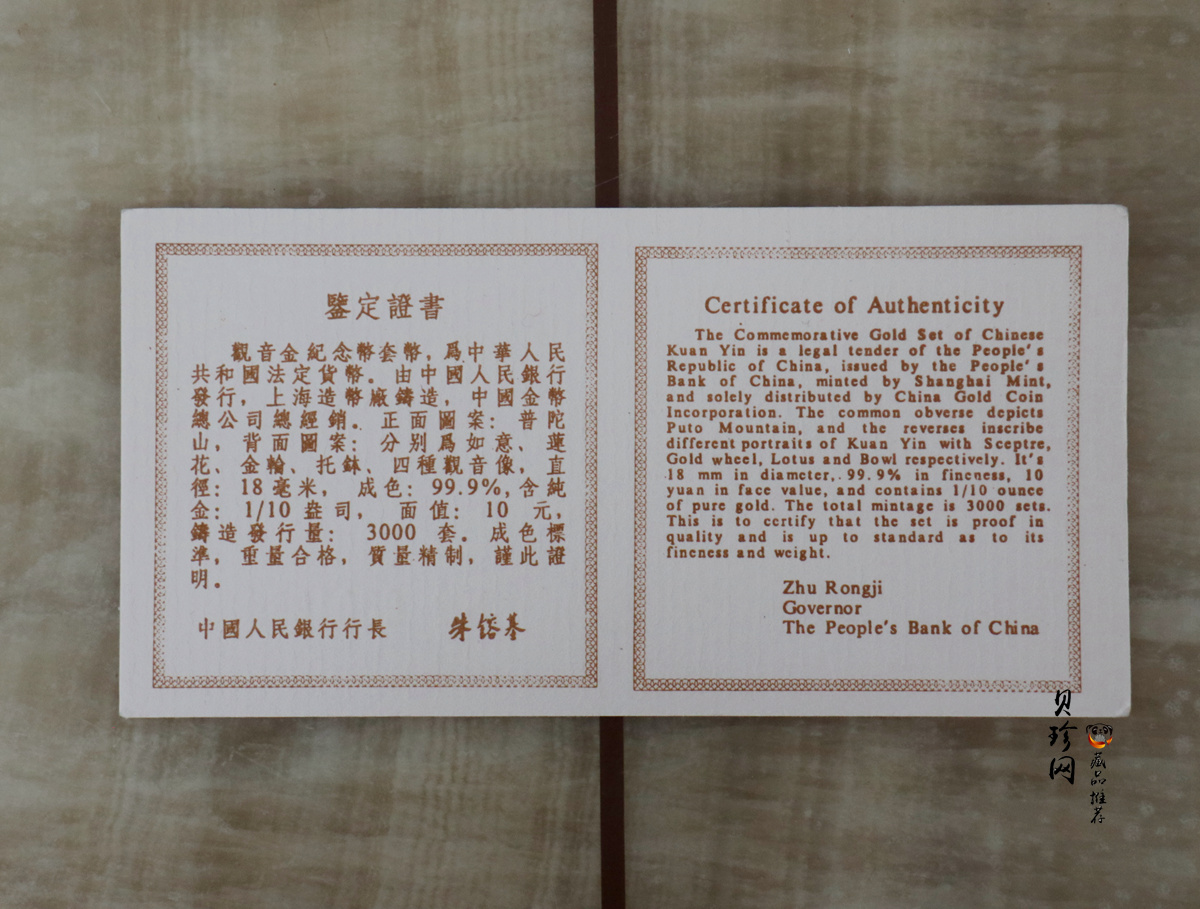 鑒定證書
觀音金紀念幣套幣，爲中華人民
共和國法定貨幣。由中國人民銀行
發行，上海造幣廠鑄造，中國金幣
總公司總經銷。正面圖案：普陀
山，背面圖案：分别爲如意、蓮
花、金輪、托鉢、四種觀音像，直
徑：18毫米，成色：99.9%,含純
金：1/10盎司，面值：10元，
鑄造發行量：3000套。成色標
準，重量合格，質量精制，謹此證
明。
中國人民銀行行長 朱鎔基
Certificate of Authenticity
The Commemorative Gold Set of Chinese
Kuan Yin is a legal tender of the People's
Republic of China, issued by the People's
Bank of China, minted by Shanghai Mint,
and solely distributed by China Gold Coin
Incorporation. The common obverse depicts
Puto Mountain, and the reverses inscribe
different portraits of Kuan Yin with Sceptre,
Gold wheel, Lotus and Bowl respectively. It's
18 mm in diameter, 99.9% in fineness, 10
yuan in face value, and contains 1/10 ounce
of pure gold. The total mintage is 3000 sets.
This is to certify that the set is proof in
quality and is up to standard as to its
fineness and weight.
Zhu Rongji
Governor
The People's Bank of China
贝珍网
藏品推荐